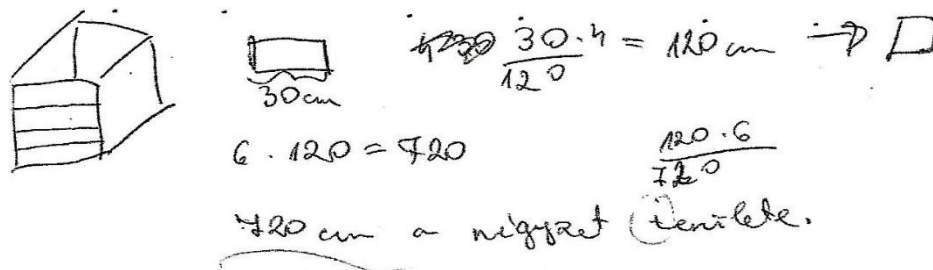 30 · 4 = 120 cm →
120
30 cm
6 · 120 = 720
120 · 6
720
720 cm a négyzet területe.